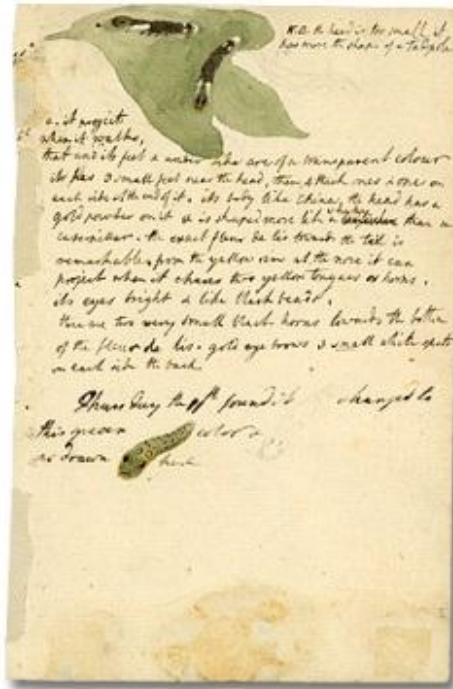 N.B. the head is too small, it
has more the shape of a Tadpole
a. it projects
when it walks,
that and its feet & under like are of a transparent colour
its has 3 small feet near the head, then 4 thick ones & one on
each side at the end of it. its body like China, the head has a
gold powder on it & is shaped more like a than a
caterpillar. the exact fleur de lis towards the tail is
remarkable, from the yellow at the nose it can
project when it chuses two yellow tongues or horns.
its eyes bright & like black beads.
there are two very small black horns towards the bottom
of the fleur de lis. gold eye brows 3 small white spots
on each side the back.
Thursday the found it changed to
this green color &
as drawn